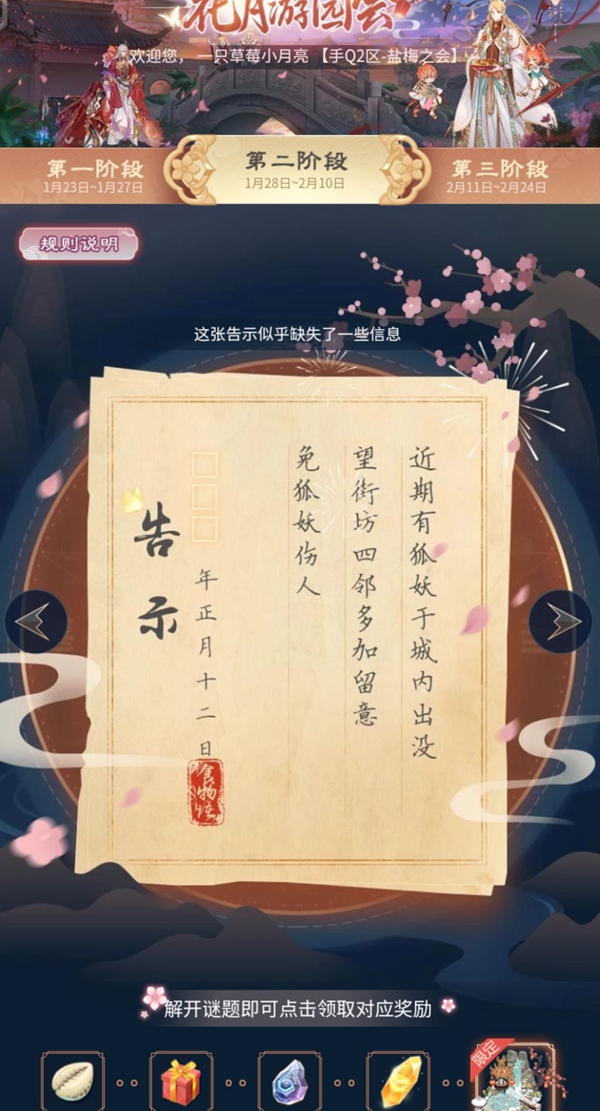 花月游园会
欢迎您， 一只草莓小月亮 【手Q2区-盐梅之会】
第一阶段
1月23日~1月27日
第二阶段
1月28日~2月10日
第三阶段
2月11日~2月24日
规则说明
这张告示似乎缺失了一些信息
近期有狐妖于城内出没
望街坊四邻多加留意
免狐妖伤人
□□□年正月十二日
食物语
告示
解开谜题即可点击领取对应奖励
限定